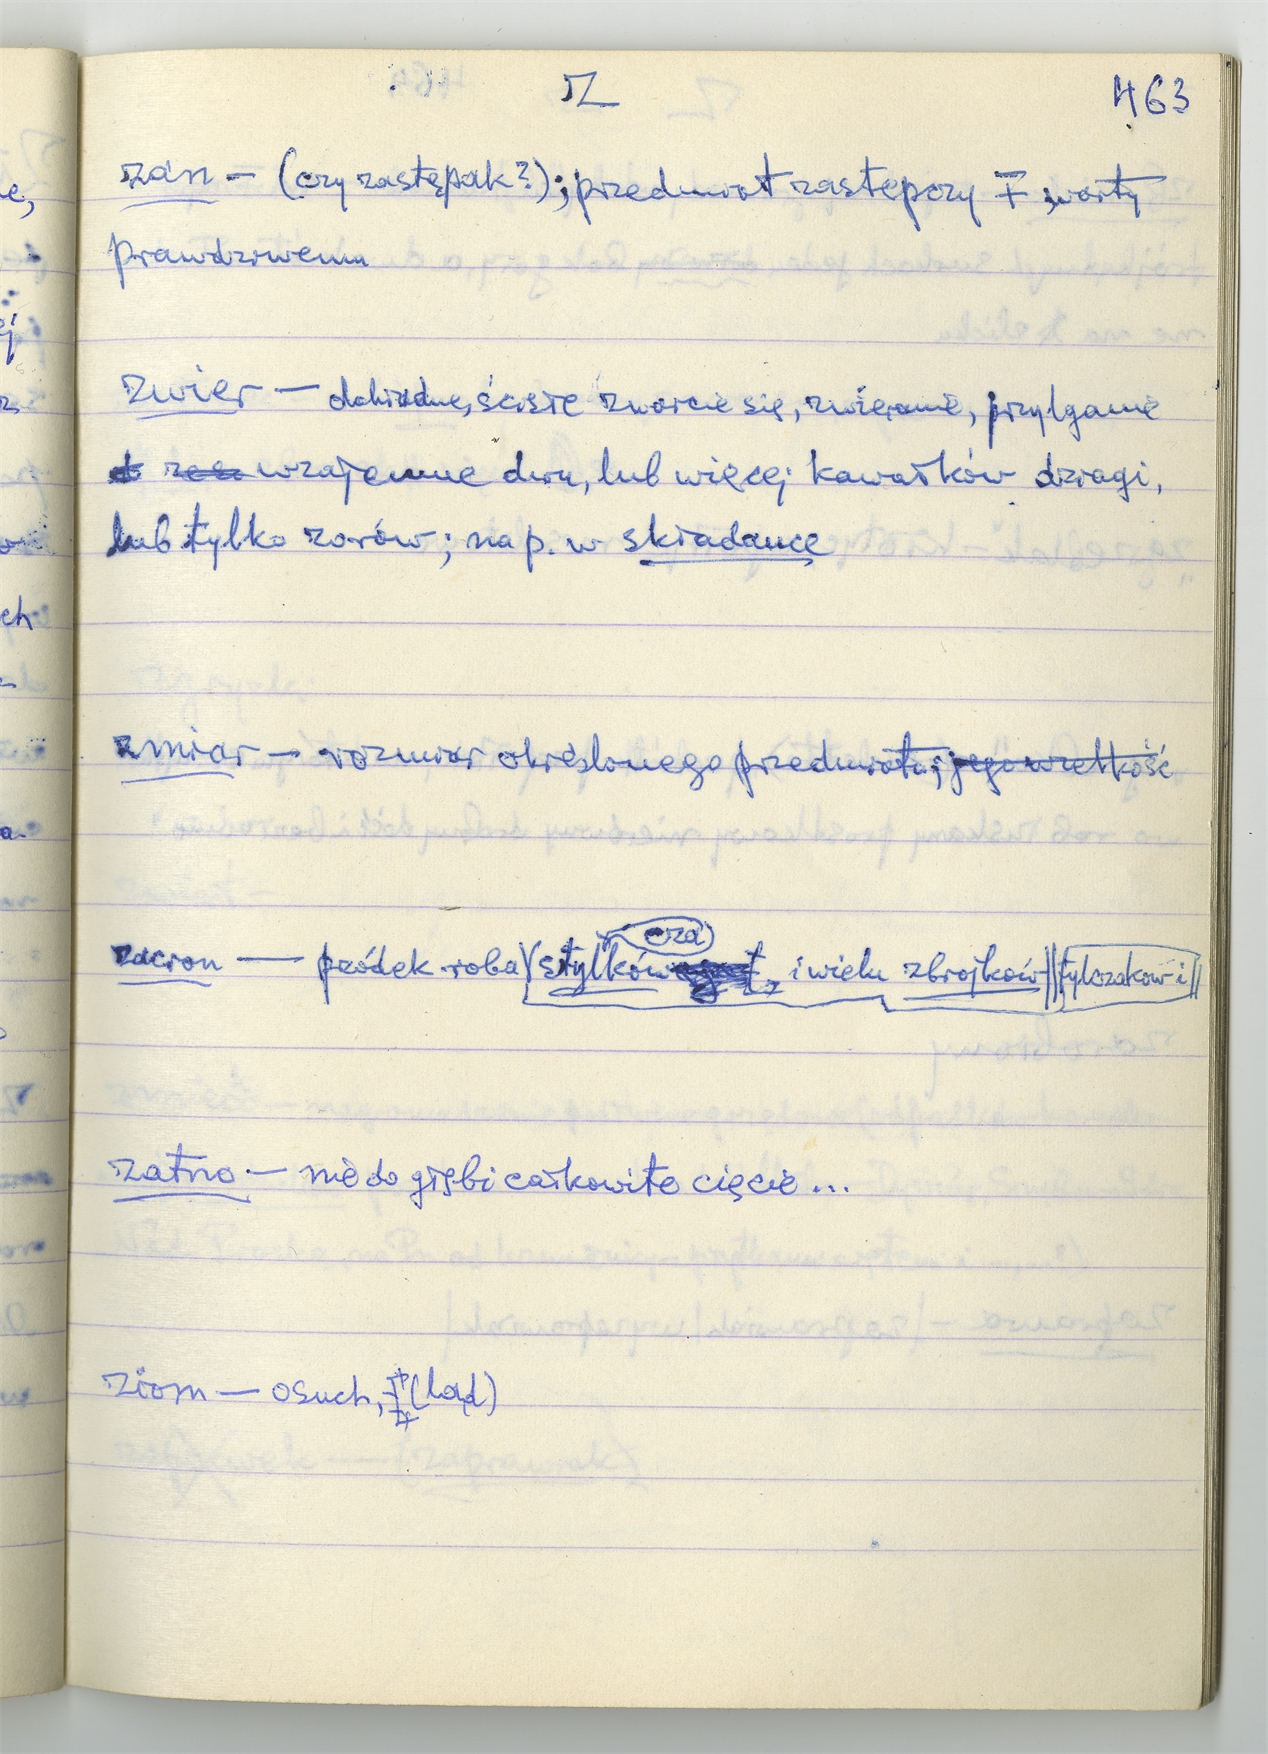 Z 463
zan — (czy zastępak?); przedmiot zastępczy ∓ warty
prawdziwemu
zwier — dokładne, ścisłe zwarcie się, zwieranie, przyleganie
wzajemne dwu, lub więcej kawałków dziagi,
lub tylko zorów; nap. w składance
zmiar — rozmiar określonego przedmiotu; jego wielkość
oza
zacron — przódek roba (stylków i wielu zbrojków || tylczaków i ||
zatno — nie do głębi całkowite cięcie...
ziom — osuch, (ląd)